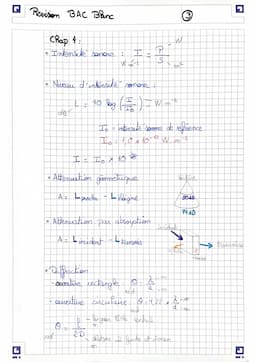 Révision BAC Blanc
CRap 1 :
• Intensité sonore : I = P/S
W
W.m⁻²
m²
• Niveau d'intensité sonore :
L = 10 log (I/I₀)
W.m⁻²
dB
I₀ = intensité sonore de référence
I₀ = 1,0 × 10⁻¹² W.m⁻²
I = I₀ × 10
• Atténuation géométrique
A = L proche - L éloigné
• Atténuation par absorption
incident
A = L incident - L transmis
• Diffraction
- ouverture rectangle : θ = λ/a
rad
- ouverture circulaire : θ = 1,22 × λ/d
rad
θ = l/2D
rad